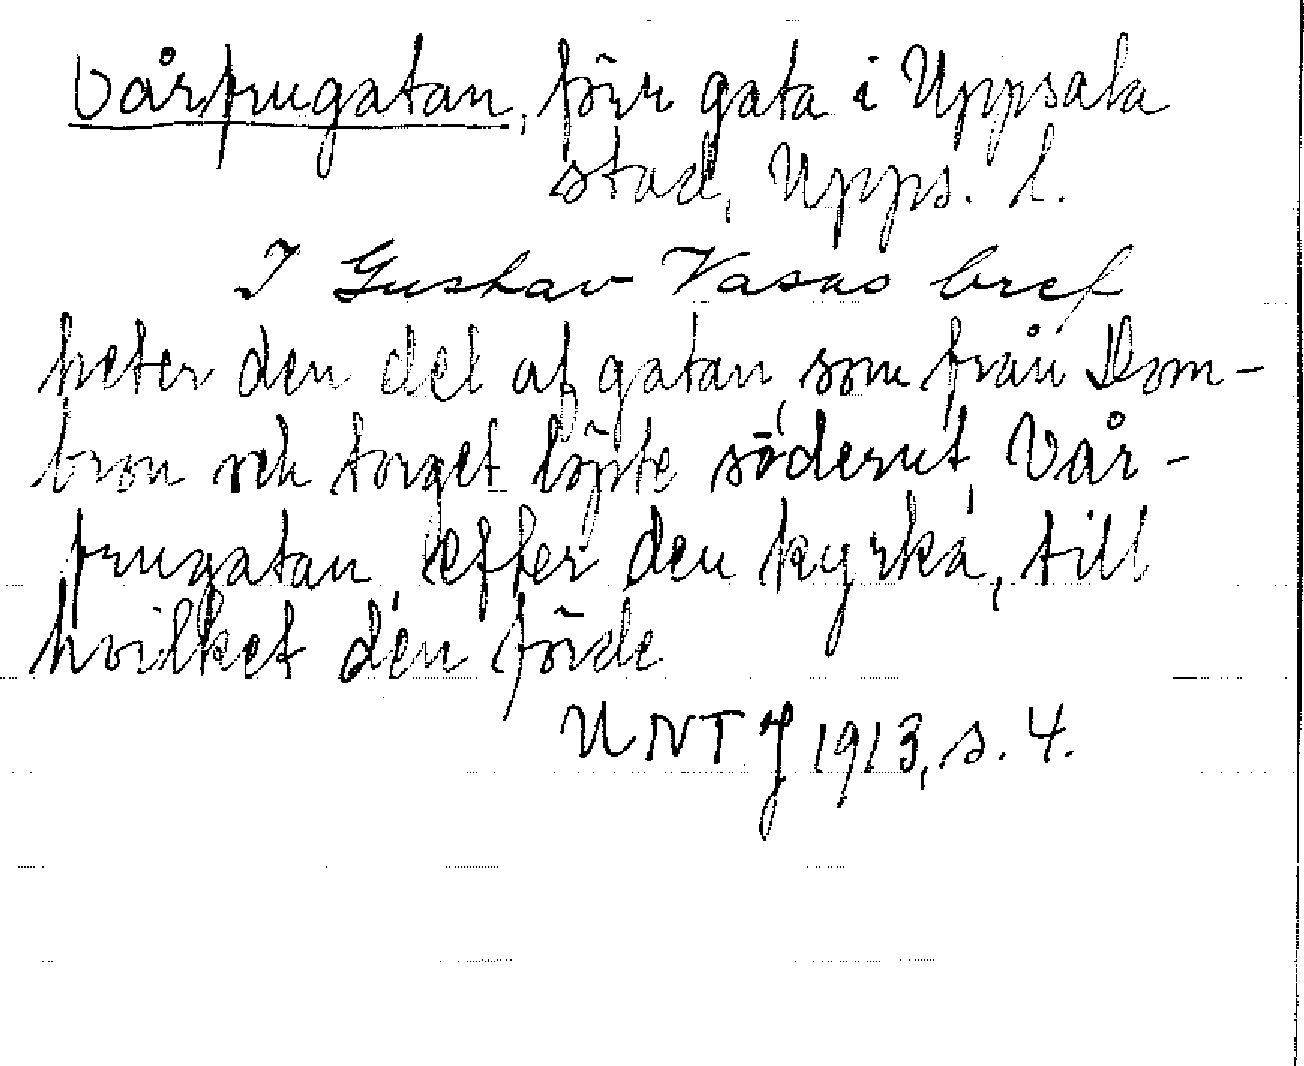 Vårfrugatan, förr gata i Uppsala
stad, Upps. l.
I Gustav Vasas bref
heter den del af gatan, som från Dom-
bron och torget löpte söderut, Vår-
frugatan, efter den kyrka, till
hvilket den förde
UNT J 1913, s. 4.